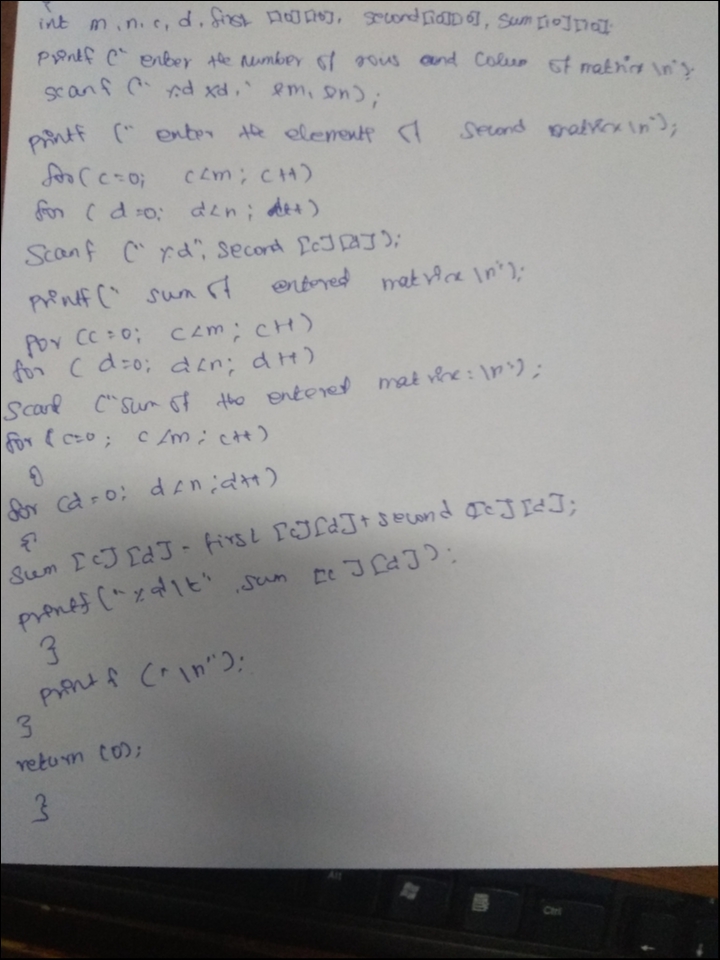 int m, n, c, d, first [10][10], second[10][10], sum[10][10];
printf (" enter the number of rows and colum of matrix \n");
scanf (" %d %d," &m, &n);
printf (" enter the elements of second matrix \n");
for( c=0; c<m ; c++)
for ( d=0; d<n ; d++)
Scanf (" %d", second [c][d]);
printf(" sum of entered matrix \n");
for (c=0; c<m ; c++)
for ( d=0; d<n; d++)
Scanf ("sum of the entered matrix: \n");
for ( c=0 ; c<m ; c++)
{
for (d=0; d<n ;d++)
{
sum [c][d]= first [c][d]+ second [c][d];
printf(" %d\t" ,sum [c][d]);
}
printf (" \n");
}
return (0);
}
Alt
Ctrl